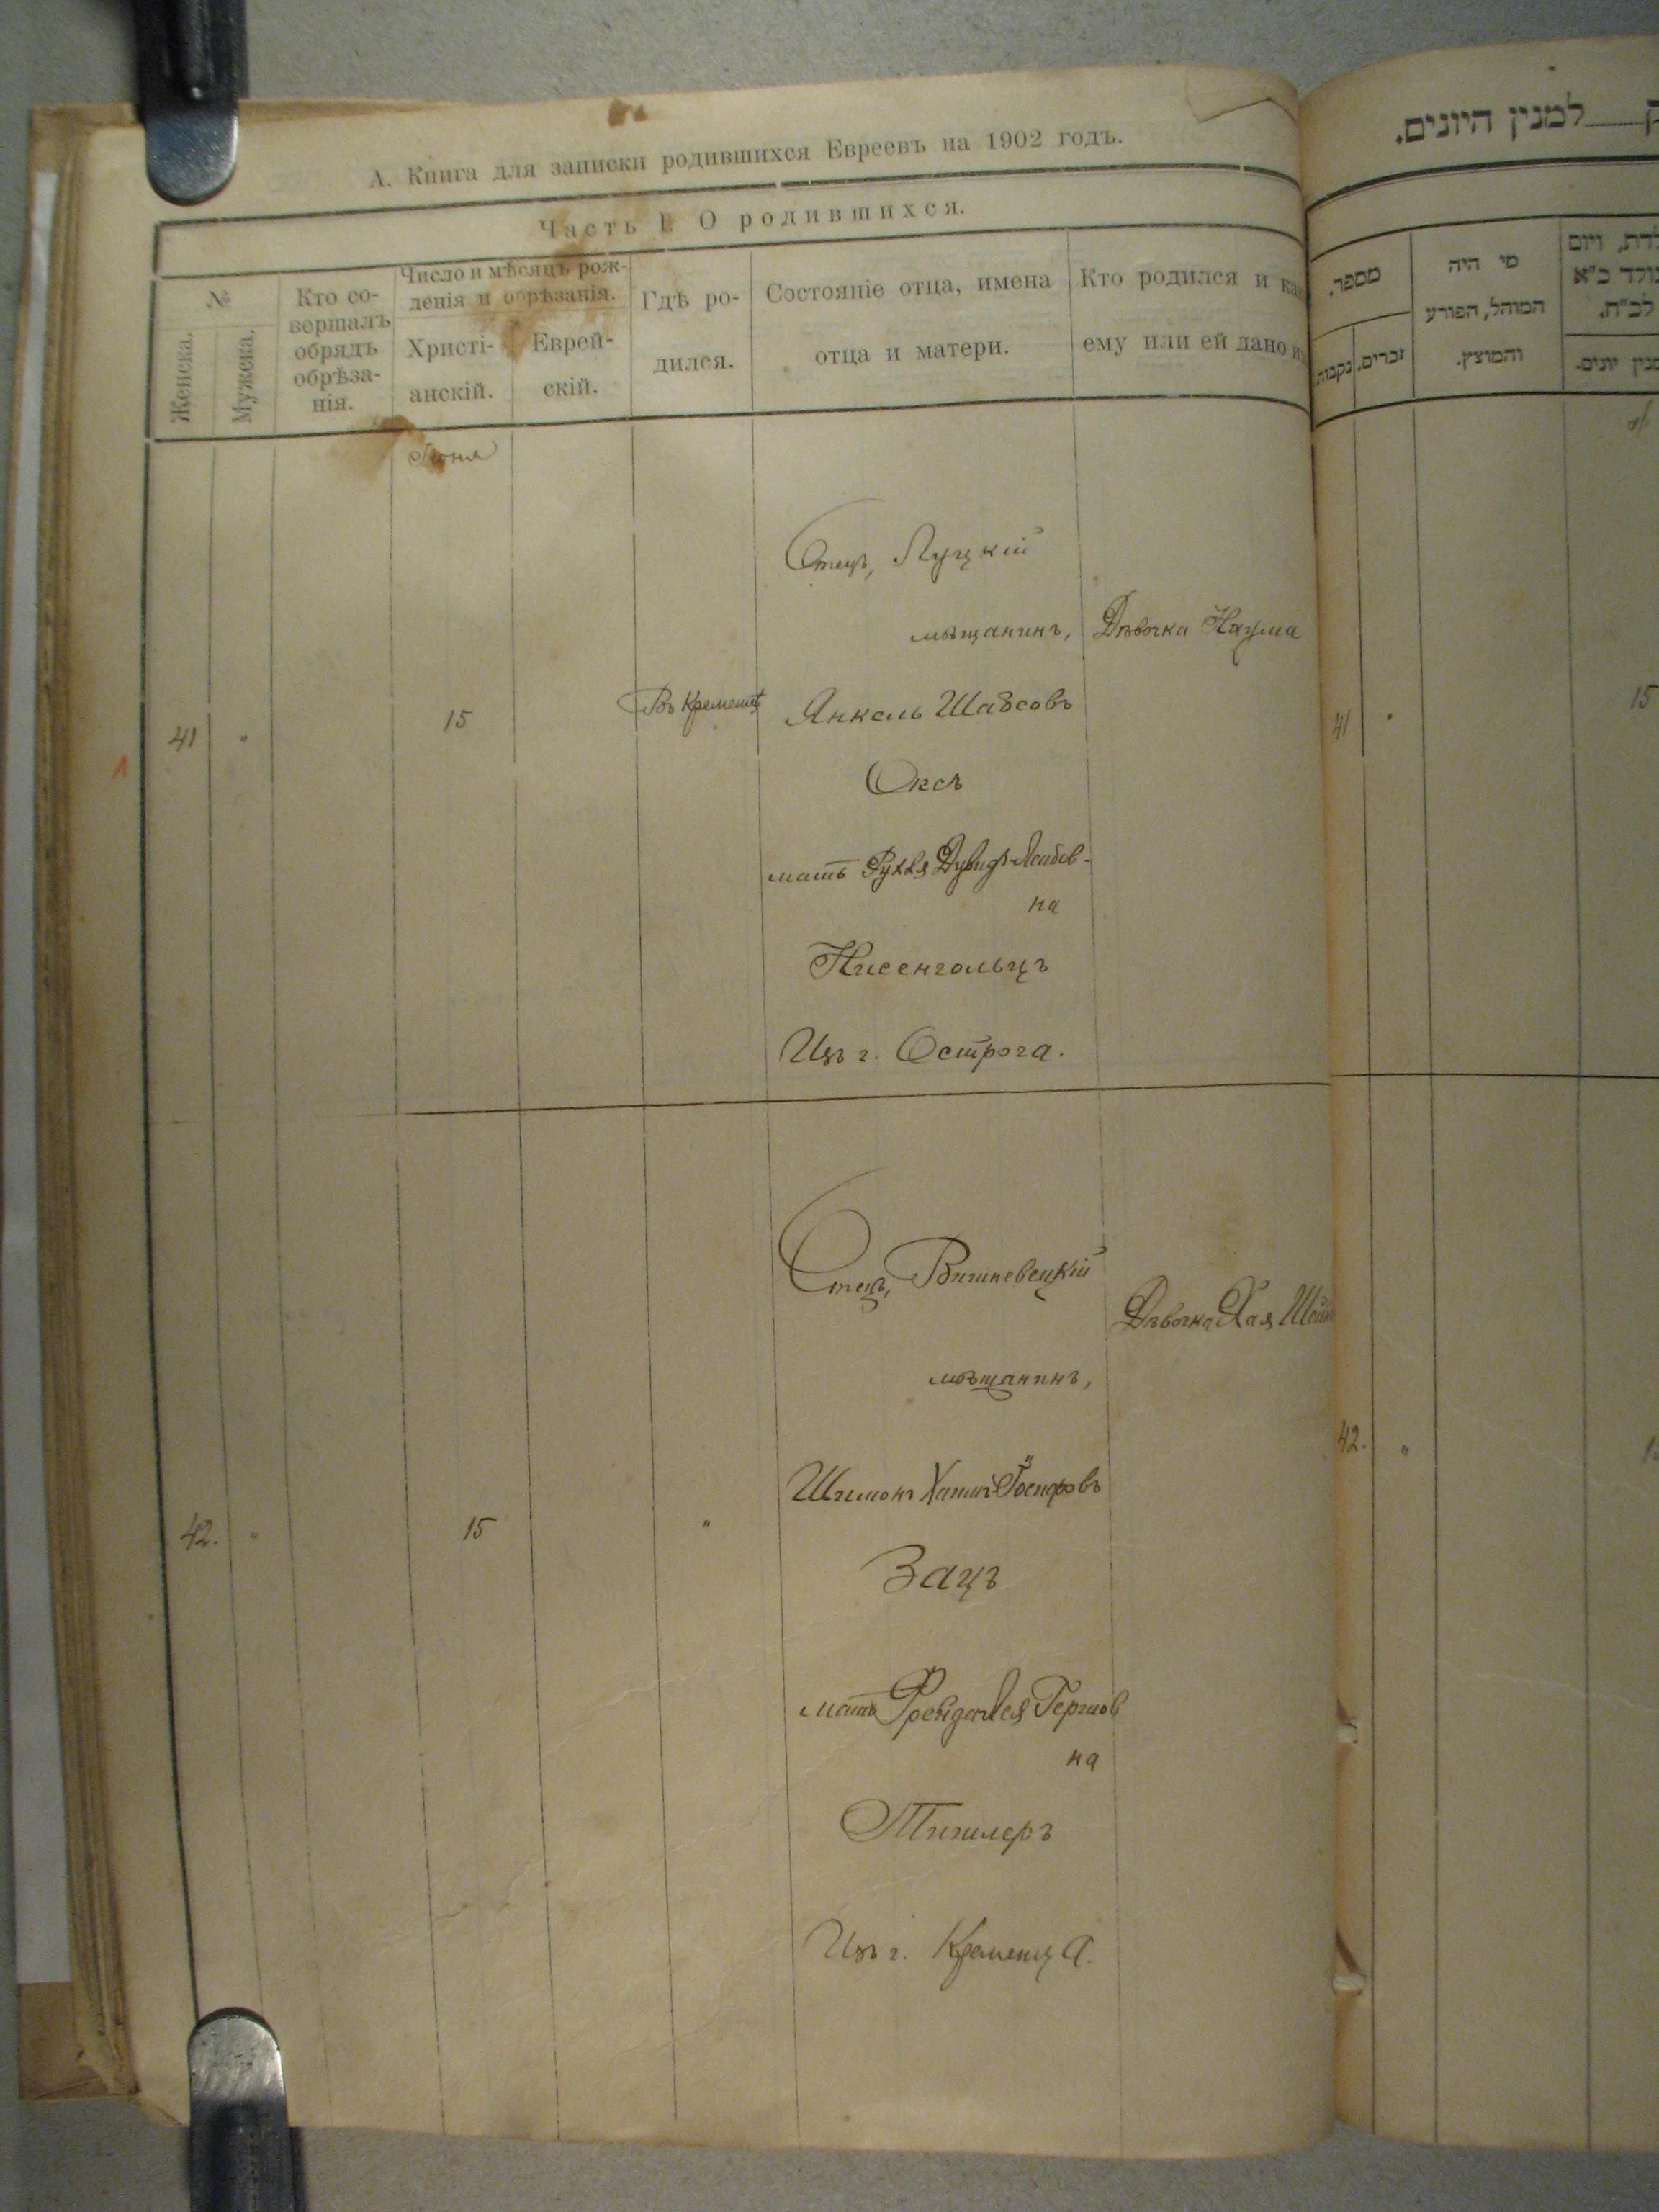 А. Книга для записки родившихся Евреевъ на 1902 годъ.
Часть I. О родившихся.
№
Женска.
Мужеска.
Кто со-
вершалъ
обрядъ
обрѣза-
нія.
Число и мѣсяцъ рож-
денія и обрѣзанія.
Христі-
анскій.
Еврей-
скій.
Гдѣ ро-
дился.
Состояніе отца, имена
отца и матери.
Кто родился и как
ему или ей дано и
Іюня
41
"
15
Въ Кременцѣ
Отецъ, Луцкій
мѣщанинъ,
Янкель Шабсовъ
Оксъ
мать Рухля Дувидъ-Лейбов-
на
Нисенгольцъ
Изъ г. Острога.
Дѣвочка Нахума
42.
"
15
"
Отецъ, Вишневецкій
мѣщанинъ,
Шимонъ Хаимъ Іосифовъ
Зацъ
мать Фрейда Лея Гершов
на
Тишлеръ
Изъ г. Кременца.
Дѣвочка Хая Шейн
למנין היונים.
מספר.
נקבות.
זכרים.
מי היה
המוהל, הפורע
והמוצץ.
ויום
כ"א
לב"ח.
יונים.
41
"
15
42.
"